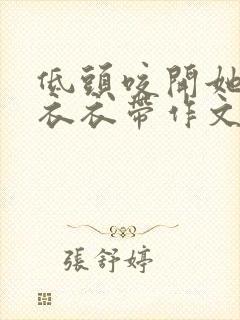 低頭咬開她
衣衣帶作文
張舒婷